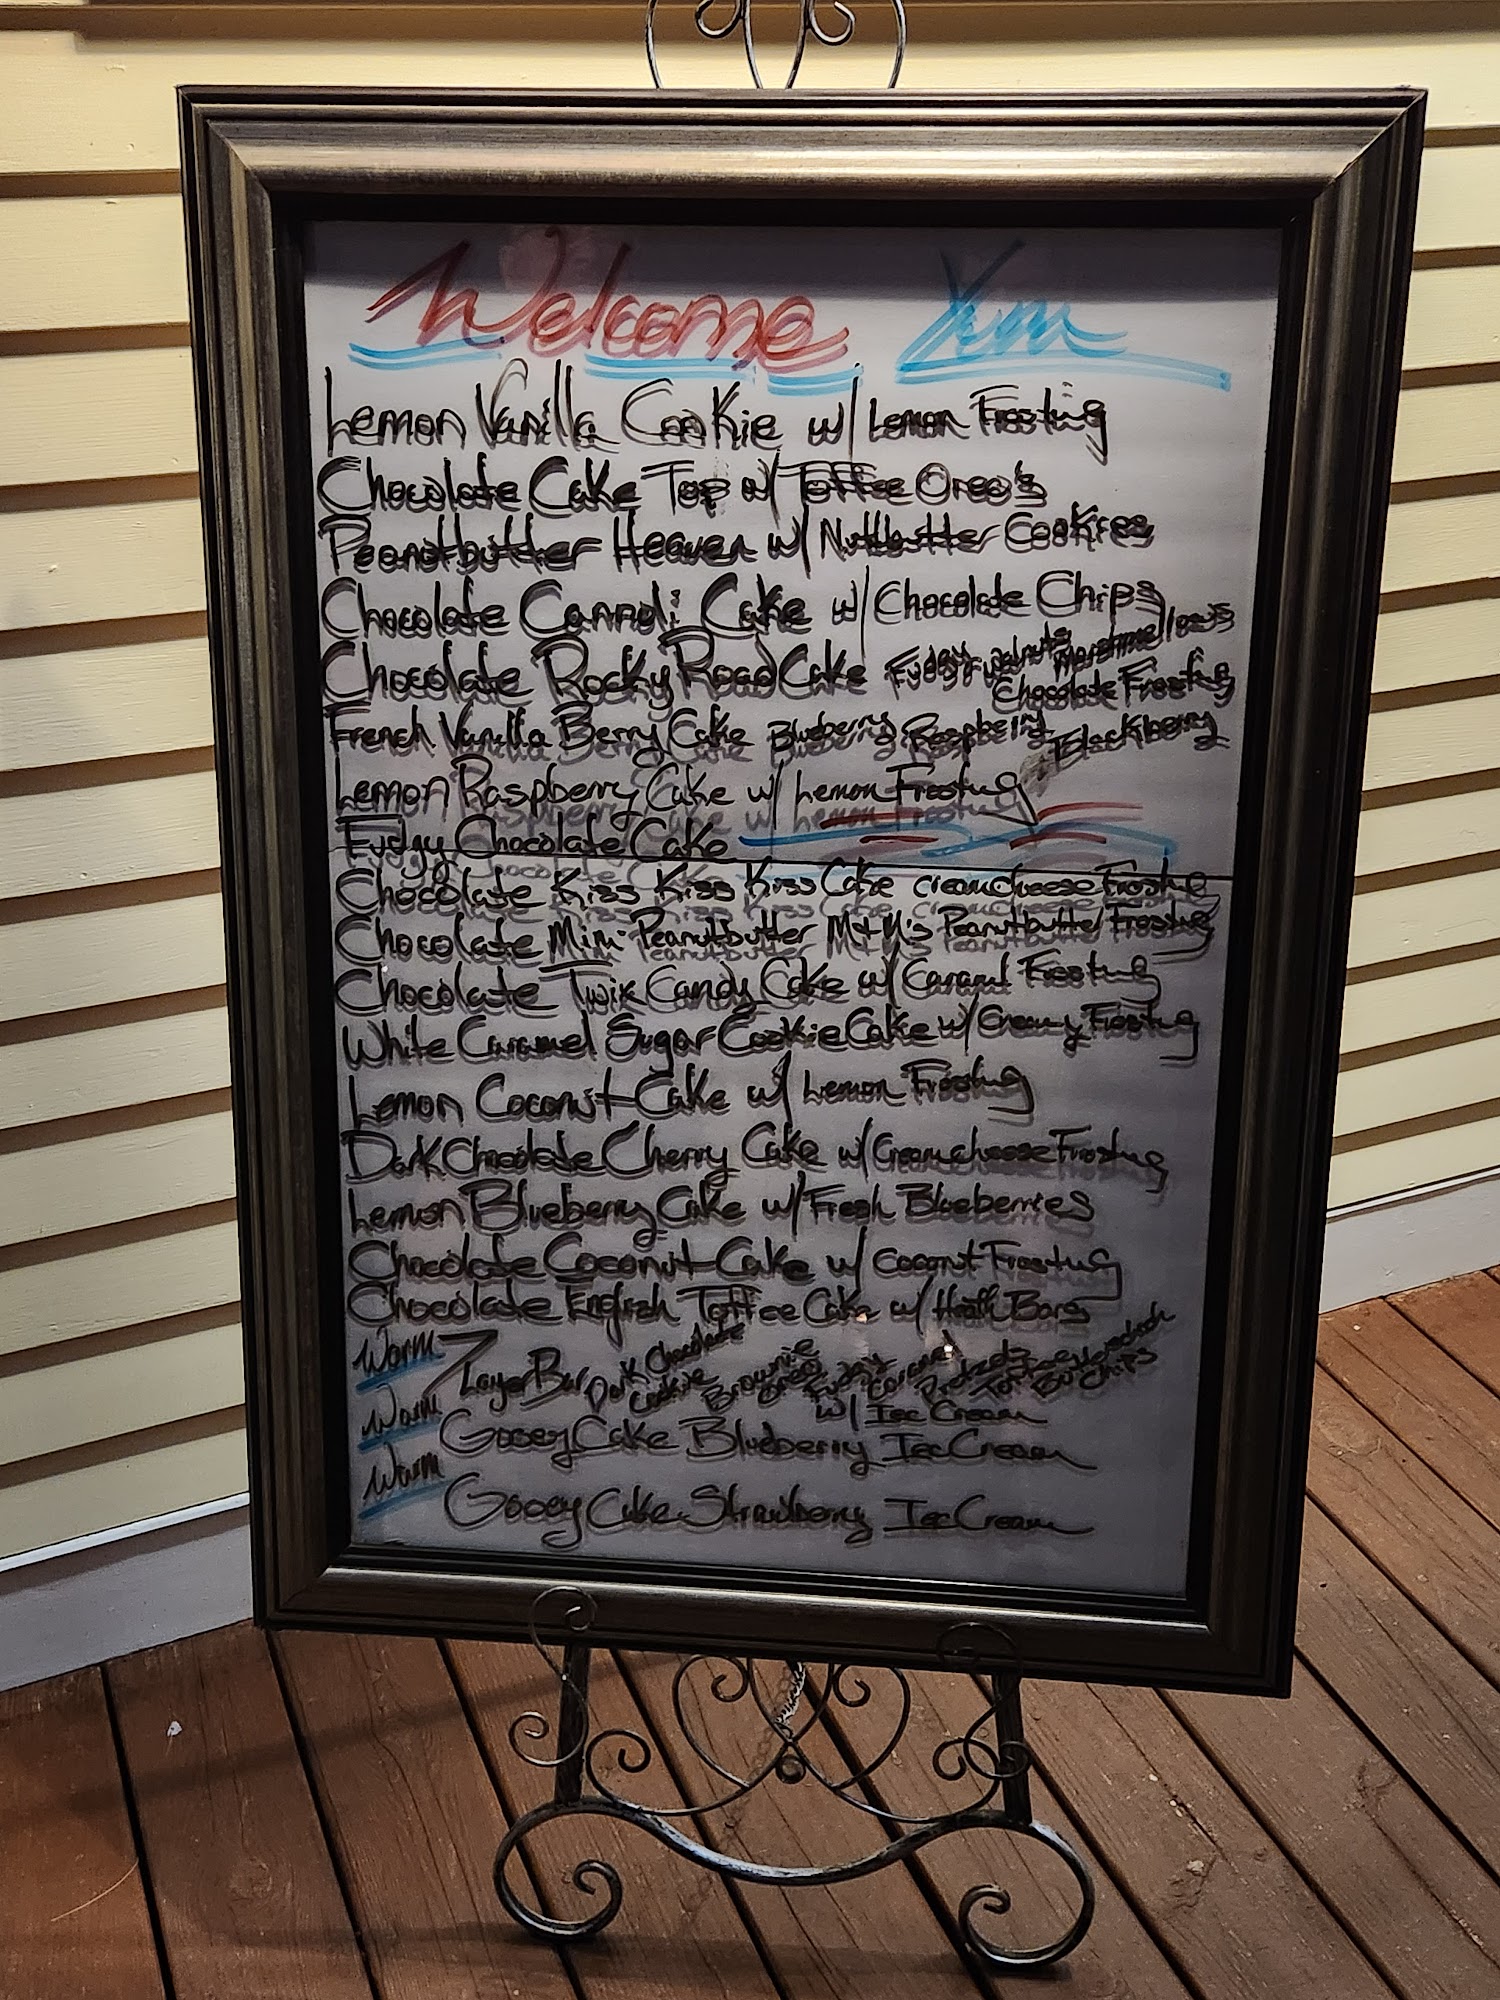 Welcome Yum
Lemon Vanilla Cookie w/ Lemon Frosting
Chocolate Cake Top w/ Toffee Oreo's
Peanutbutter Heaven w/ Nuttbutter Cookies
Chocolate Cannoli Cake w/ Chocolate Chips
Chocolate Rocky Road Cake Fudgy walnuts Marshmellows
Chocolate Frosting
French Vanilla Berry Cake Blueberry Raspberry Blackberry
Lemon Raspberry Cake w/ Lemon Frosting
Fudgy Chocolate Cake
Chocolate Kiss Kiss Kiss Cake creamcheese Frosting
Chocolate Mini Peanutbutter M+M's Peanutbutter Frosting
Chocolate Twix Candy Cake w/ Caramel Frosting
White Caramel Sugar Cookie Cake w/ Creamy Frosting
Lemon Coconut Cake w/ Lemon Frosting
Dark Chocolate Cherry Cake w/ Creamcheese Frosting
Lemon Blueberry Cake w/ Fresh Blueberries
Chocolate Coconut Cake w/ Coconut Frosting
Chocolate English Toffee Cake w/ Heath Bars
Warm 7 Layer Bar Dark Chocolate
Cookie Brownie Oreo Fudgy Caramel Pretzels Toffee Chips
w/ Ice Cream
Warm Gooey Cake Blueberry Ice Cream
Warm Gooey Cake Strawberry Ice Cream